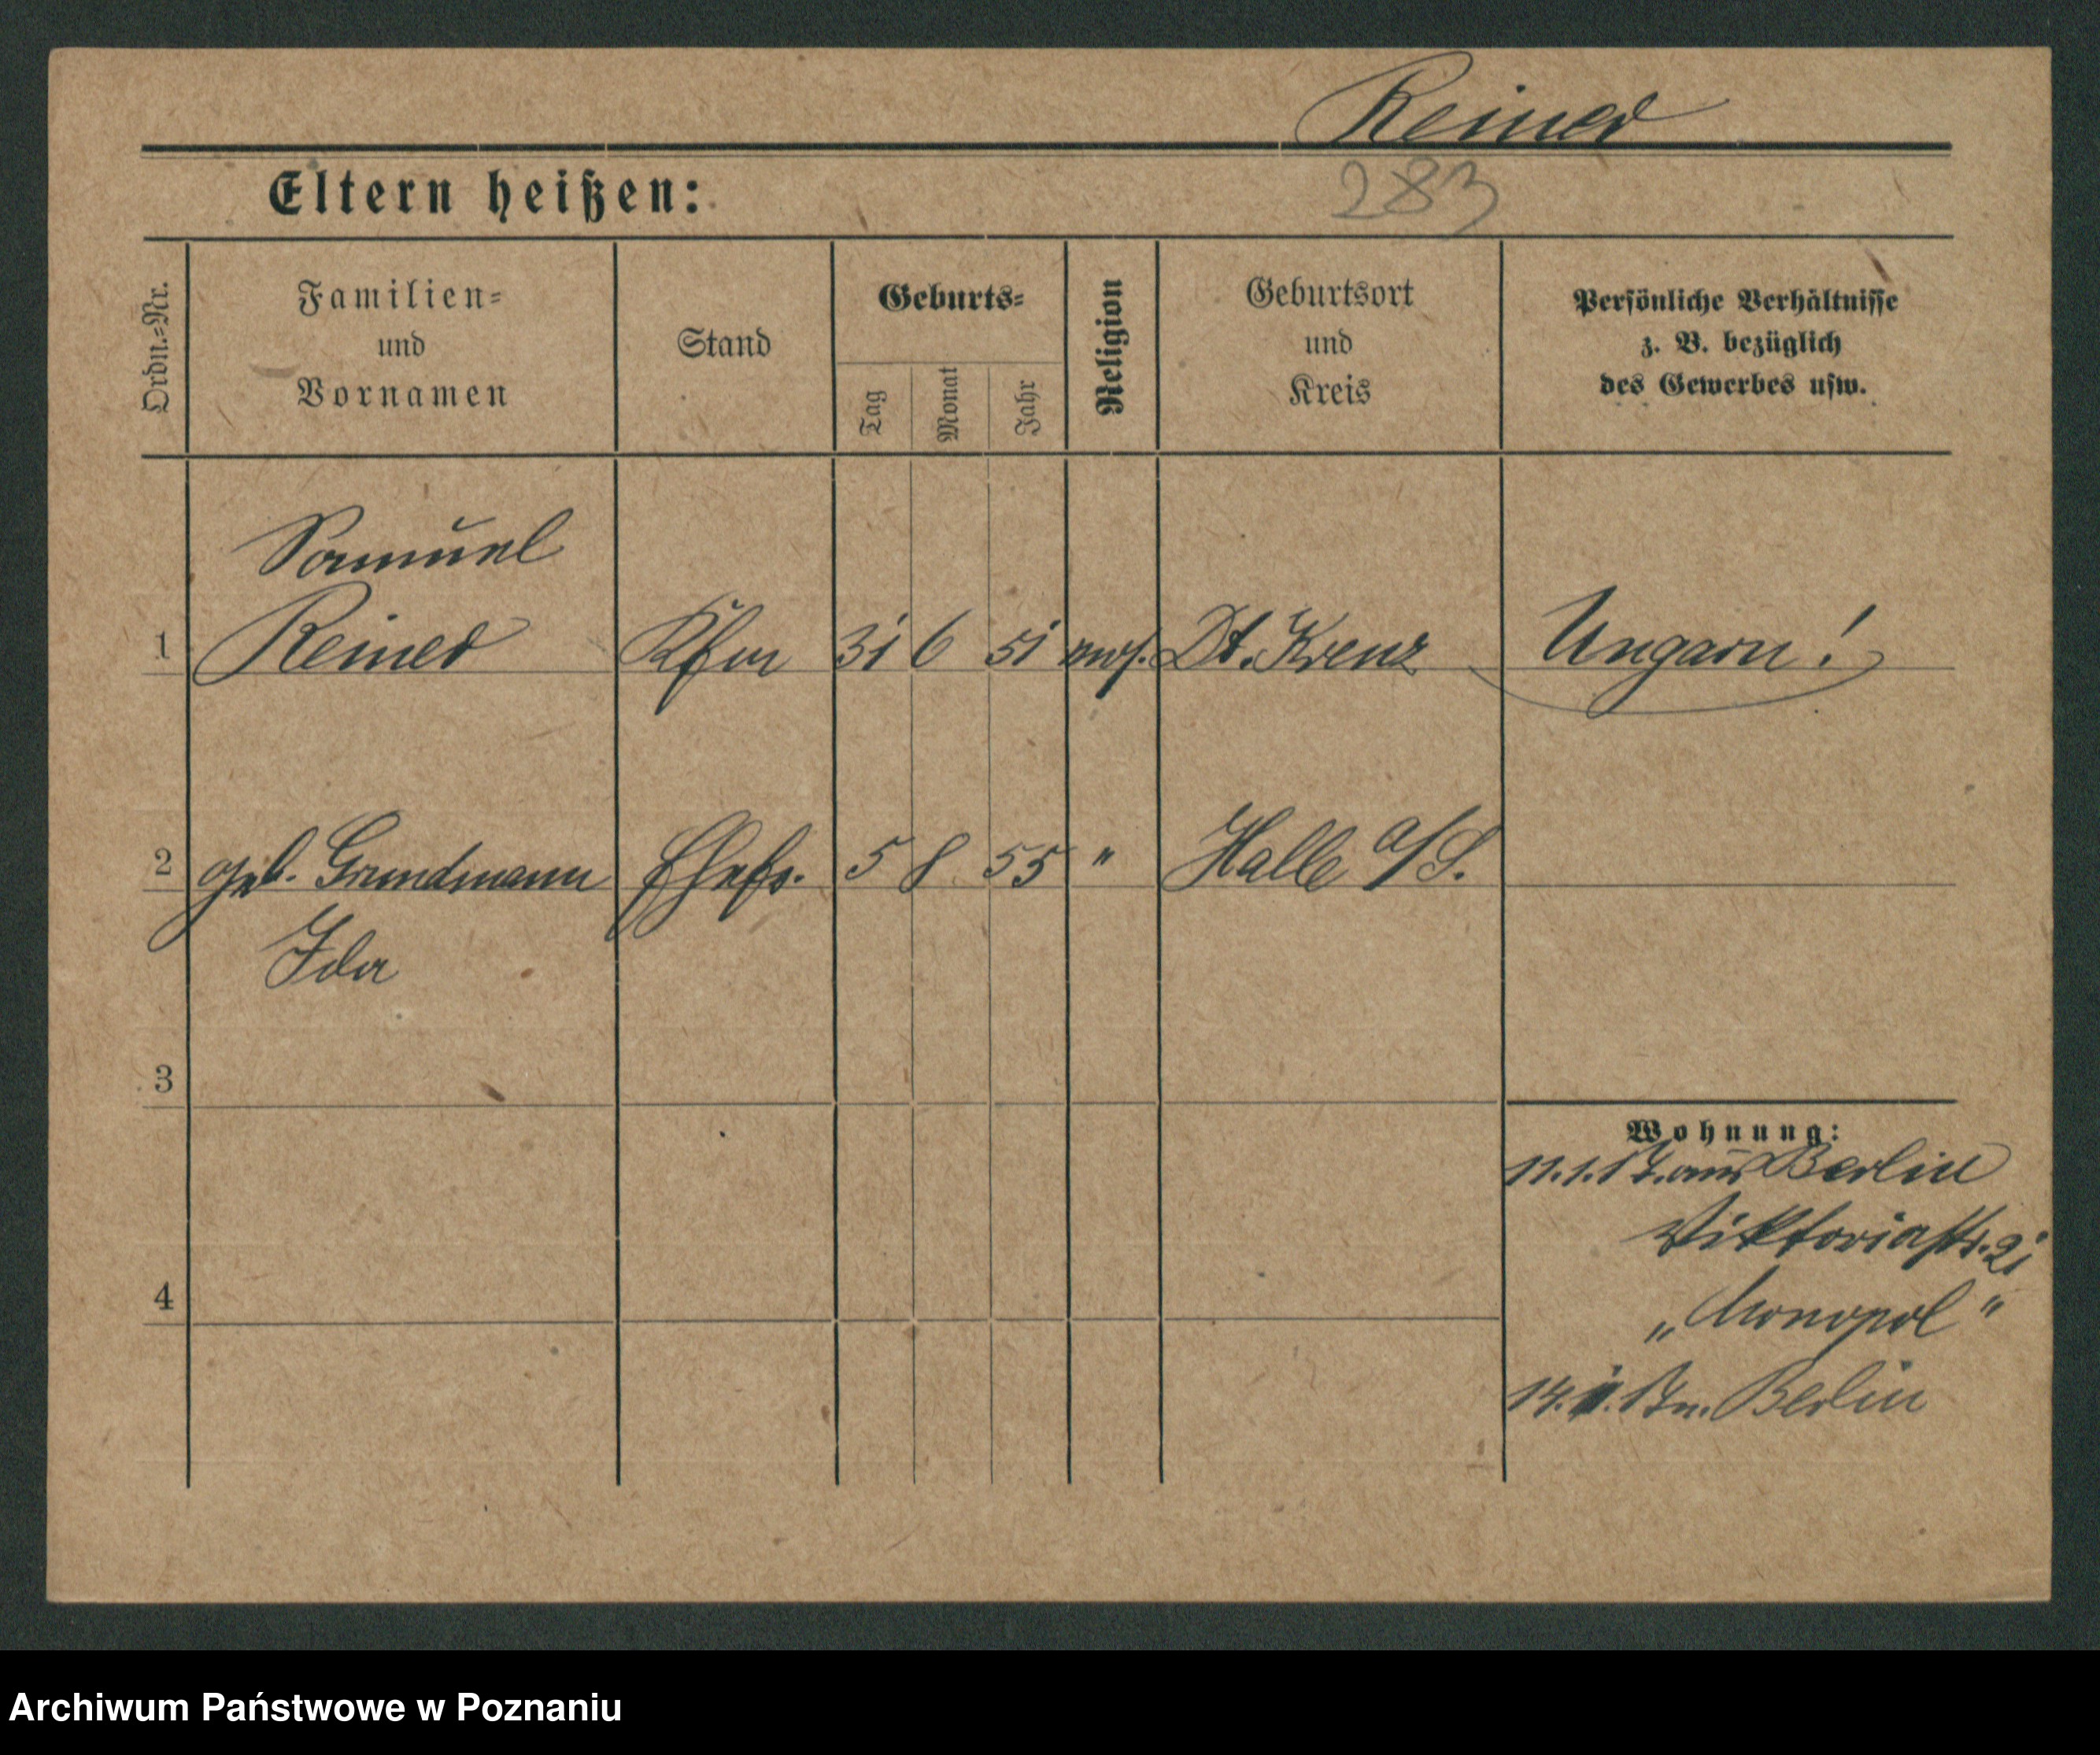 Reiner
283
Eltern heißen:
Ordn.-Nr.
Familien-
und
Vornamen
Stand
Geburts-
Tag
Monat
Jahr
Religion
Geburtsort
und
Kreis
Persönliche Verhältnisse
z. B. bezüglich
des Gewerbes usw.
Samuel
1 Reiner Kfm 31 6 51 mos. Dt. Kreuz Ungarn!
2 geb. Grundmann Ehefr. 5 8 55 " Halle a/S.
Ida
3
4
Wohnung:
11.1.17. aus Berlin
Viktoriastr. 21
„Monopol“
14. 17 n. Berlin
Archiwum Państwowe w Poznaniu